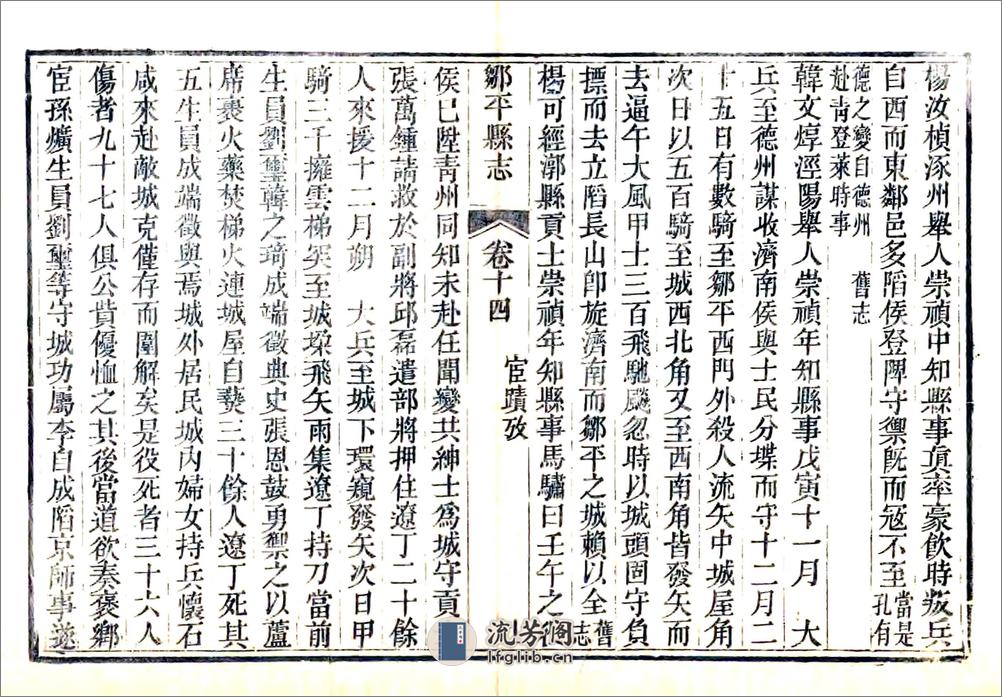 楊汝楨涿州舉人崇禎中知縣事真率豪飲時叛兵
自西而東鄰邑多陷侯登陴守禦旣而冦不至當是孔有
德之變自德州赴靑登萊時事 舊志
韓文焞涇陽舉人崇禎年知縣事戊寅十一月 大
兵至德州謀收濟南侯與士民分堞而守十二月二
十五日有數騎至鄒平西門外殺人流矢中城屋角
次日以五百騎至城西北角又至西南角皆發矢而
去逼午大風甲士三百飛馳飈忽時以城頭固守負
摽而去立陷長山卽旋濟南而鄒平之城賴以全舊志
楊可經漷縣貢士崇禎年知縣事馬驌曰壬午之
鄒平縣志 卷十四 宦蹟攷
侯已陞靑州同知未赴任聞變共紳士爲城守貢
張萬鍾請救於副將邱磊遣部將押住遼丁二十餘
人來援十二月朔 大兵至城下環窺發矢次日甲
騎三千擁雲梯突至城墚飛矢雨集遼丁持刀當前
生員劉壐韓之琦成端徵典史張恩鼓勇禦之以蘆
席裹火藥焚梯火連城屋自斃三十餘人遼丁死其
五生員成端徵與焉城外居民城內婦女持兵懷石
咸來赴敵城克僅存而圍解矣是役死者三十六人
傷者九十七人俱公貲優恤之其後當道欲奏褒鄉
宦孫爌生員劉壐等守城功屬李自成陷京師事遂
流芳阁
lfglib.cn